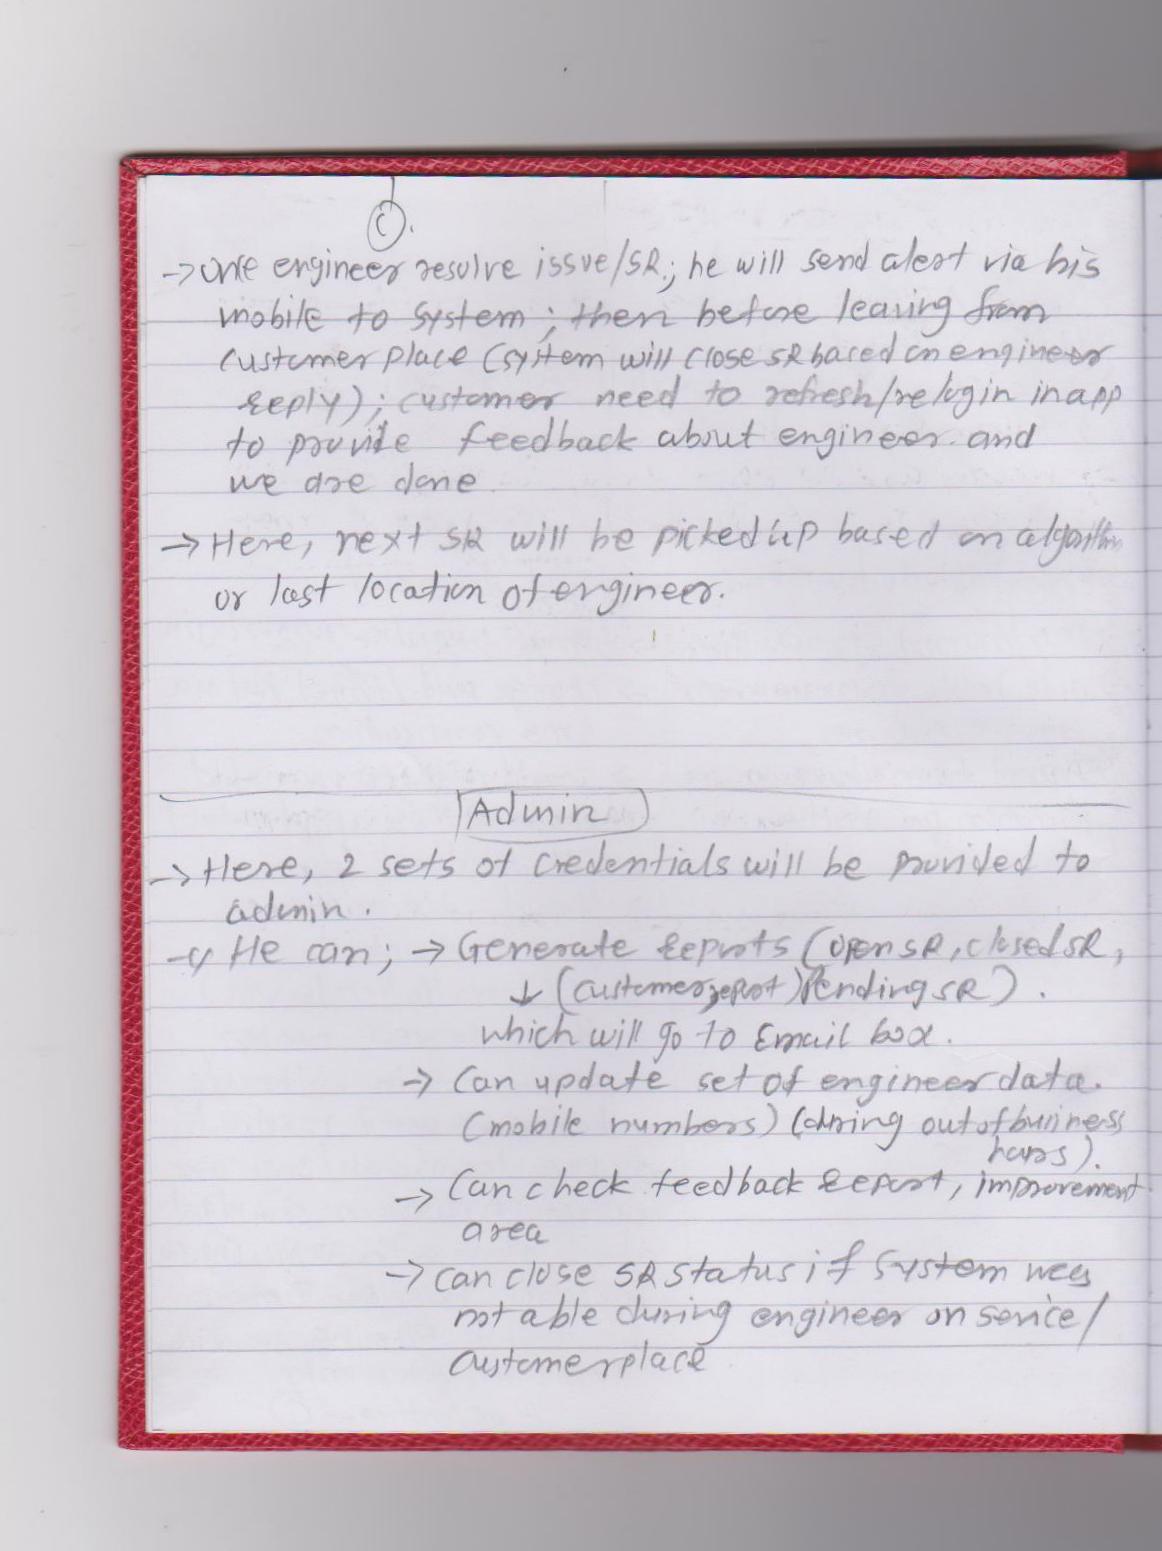 C.
→ once engineer resolve issue/SR; he will send alert via his
mobile to system; then before leaving from
customer place (system will close SR based on engineer
reply); customer need to refresh/relogin in app
to provide feedback about engineer. and
we are done
→ Here, next SR will be picked up based on algorithm
or last location of engineer.
Admin
→ Here, 2 sets of credentials will be provided to
admin.
→ He can; → Generate Reports (open SR, closed SR,
↓ (customer report) Pending SR).
which will go to Email box.
→ Can update set of engineer data.
(mobile numbers) (during out of business
hours).
→ Can check feedback Report, improvement
area
→ can close SR status if system was
not able during engineer on service/
customer place